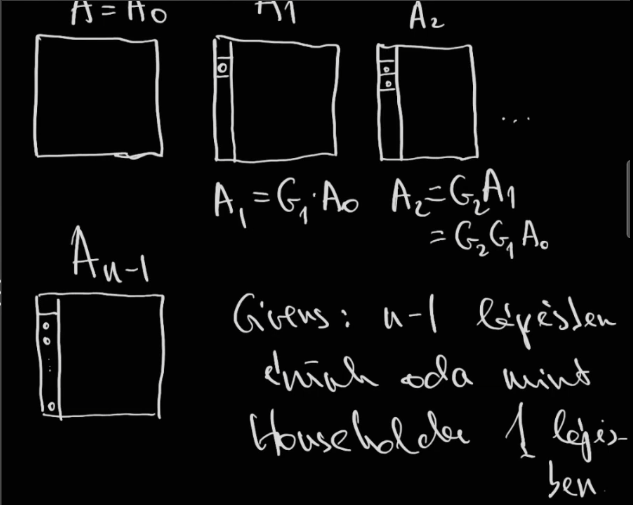 A = A₀
A1
A₂
...
A₁ = G₁·A₀
A₂ = G₂A₁
= G₂G₁A₀
Aₙ₋₁
Givens: n-1 lépésben
érünk oda mint
Householder 1 lépés-
ben